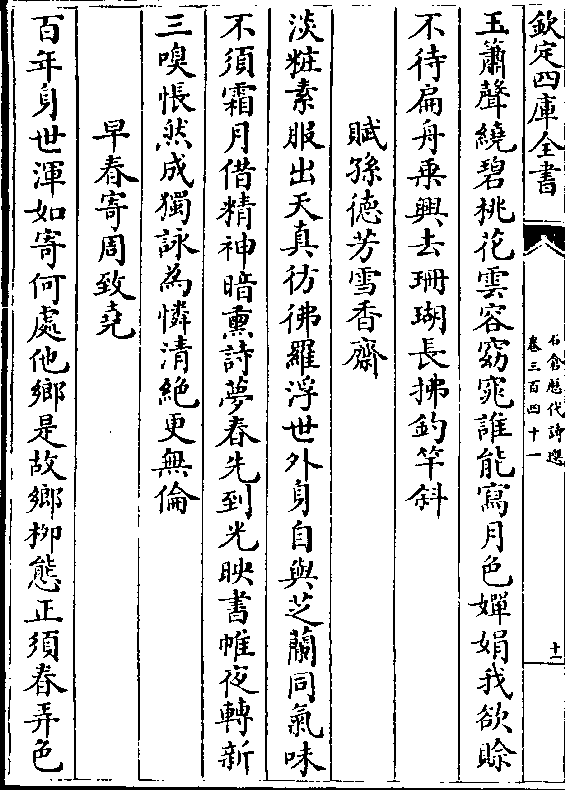 欽定四庫全書
石倉歷代詩選
卷三百四十一
十二
玉簫聲繞碧桃花雲容窈窕誰能寫月色嬋娟我欲賒
不待扁舟乗興去珊瑚長拂釣竿斜
賦孫德芳雪香齋
淡粧素服出天真彷彿羅浮世外身自與芝蘭同氣味
不須霜月借精神暗熏詩夢春先到光映書帷夜轉新
三嗅悵然成獨詠為憐清絶更無倫
早春寄周致堯
百年身世渾如寄何處他鄉是故鄉柳態正須春弄色